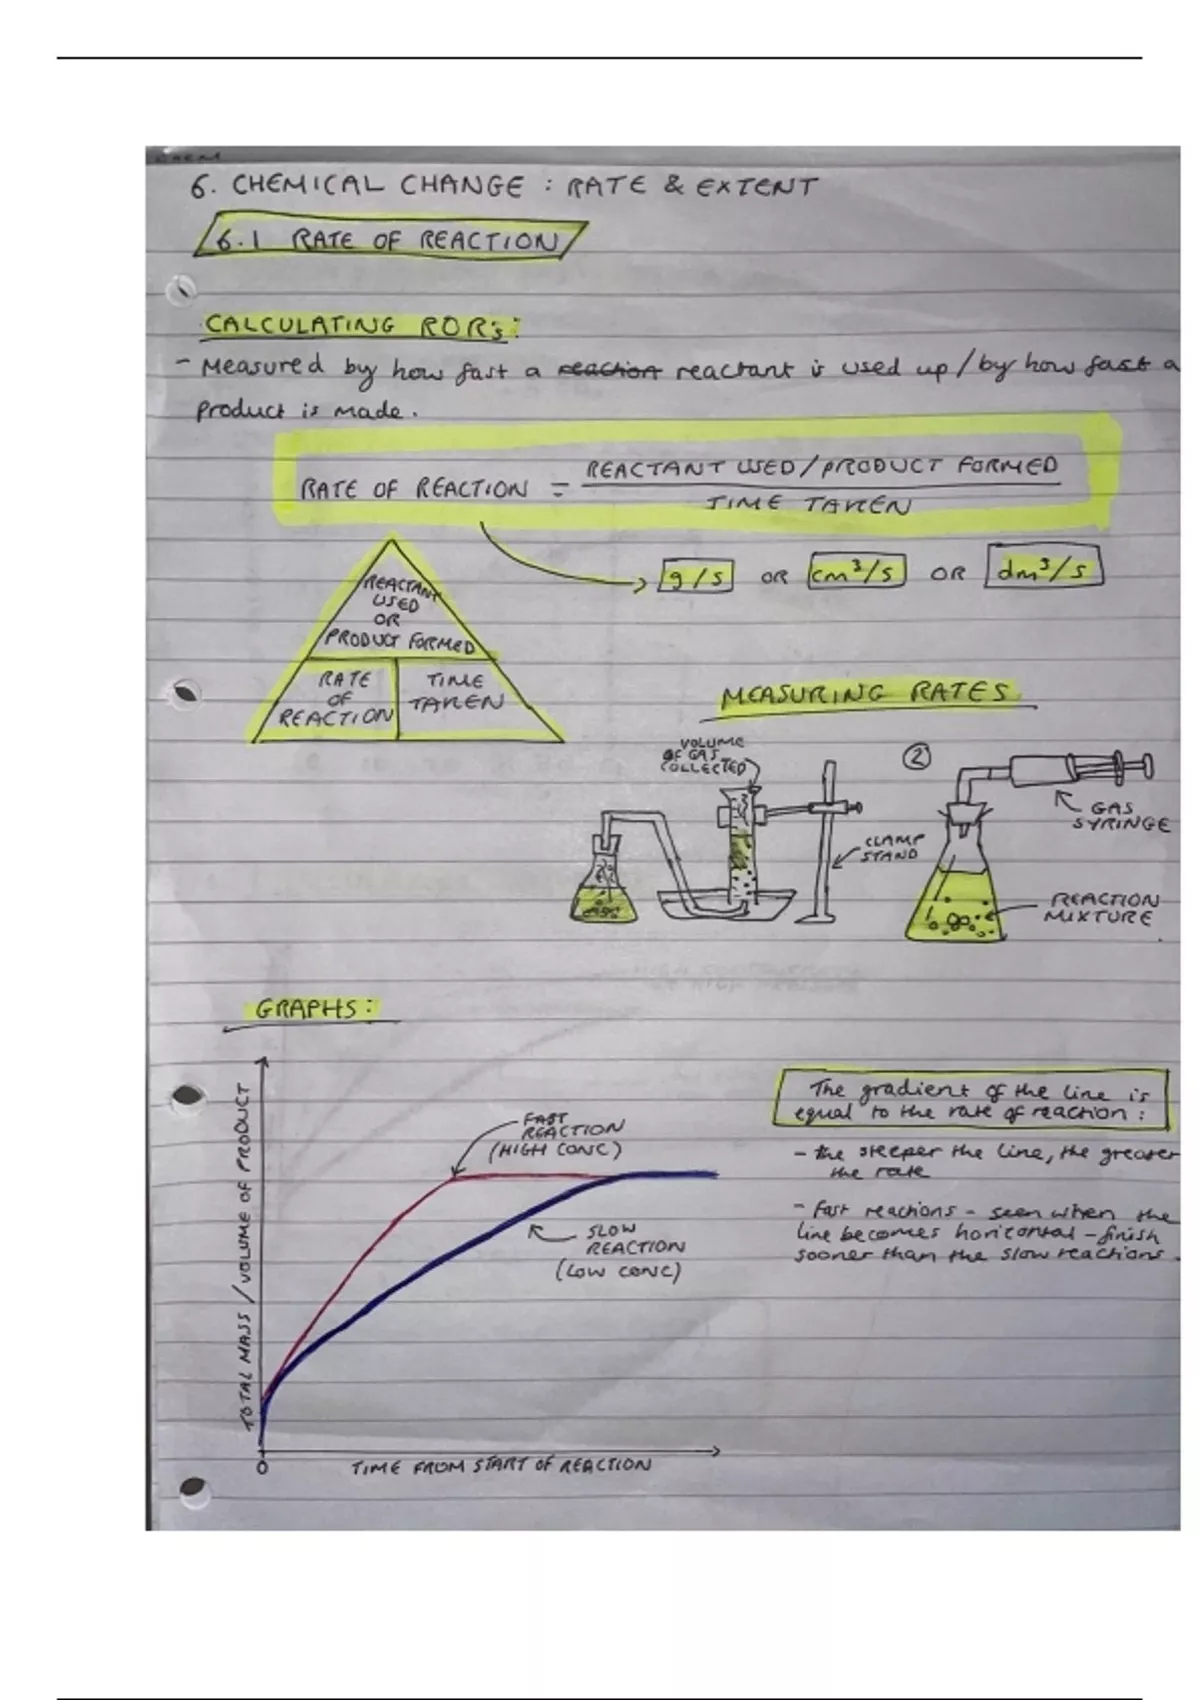 CHEM
6. CHEMICAL CHANGE : RATE & EXTENT
6.1 RATE OF REACTION
CALCULATING ROR's :
- Measured by how fast a reaction reactant is used up / by how fast a
product is made.
RATE OF REACTION = REACTANT USED / PRODUCT FORMED
TIME TAKEN
g/s OR cm³/s OR dm³/s
REACTANT
USED
OR
PRODUCT FORMED
RATE
OF
REACTION
TIME
TAKEN
MEASURING RATES
VOLUME
OF GAS
COLLECTED
CLAMP
STAND
2
GAS
SYRINGE
REACTION
MIXTURE
GRAPHS :
TOTAL MASS / VOLUME OF PRODUCT
FAST
REACTION
(HIGH CONC)
SLOW
REACTION
(LOW CONC)
0
TIME FROM START OF REACTION
The gradient of the line is
equal to the rate of reaction :
- the steeper the line, the greater
the rate
- Fast reactions - seen when the
line becomes horizontal - finish
sooner than the slow reactions.